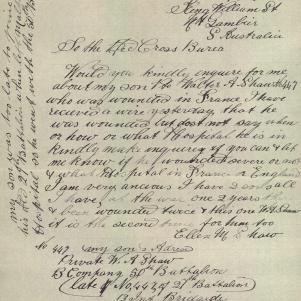 King William St
Mt Gambier
S Australia
To the Red Cross Burea
Would you kindly enquire for me
about my son Pte Walter A Shaw 447
who was wounded in France I have
received a wire yesterday that he
was wounded but does not say when
or how or what Hospital He is in
kindly make enquirey if you can & let
me know if he wounded severe or not
& what Hospital in France or England
I am very ancious I have 2 sons all
I have, at the war one 2 years the
been wounded twice & this one W A Shaw
it is the second time for him too
Ellen M Shaw
No 447 my son's Adress
Private W. A Shaw
B Company 50th Battalion
late of No 447 of 27th Battalion
my son was too late to join
his old 27 Battalion when he left
Hospital so he went with the 50 Batt